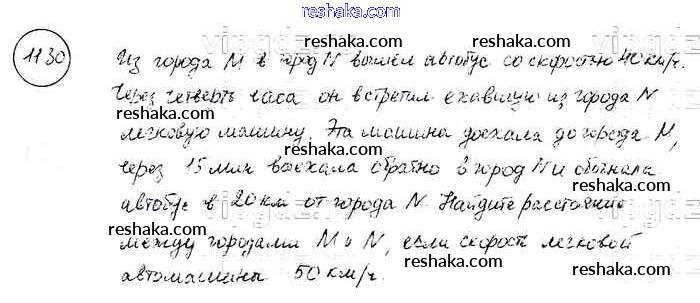 reshaka.com
1130
Из города М в город N вышел автобус со скоростью 40 км/ч.
Через четверть часа он встретил ехавшую из города N
легковую машину. Эта машина доехала до города М,
через 15 мин выехала обратно в город N и обогнала
автобус в 20 км от города N. Найдите расстояние
между городами М и N, если скорость легковой
автомашины 50 км/ч.
reshaka.com